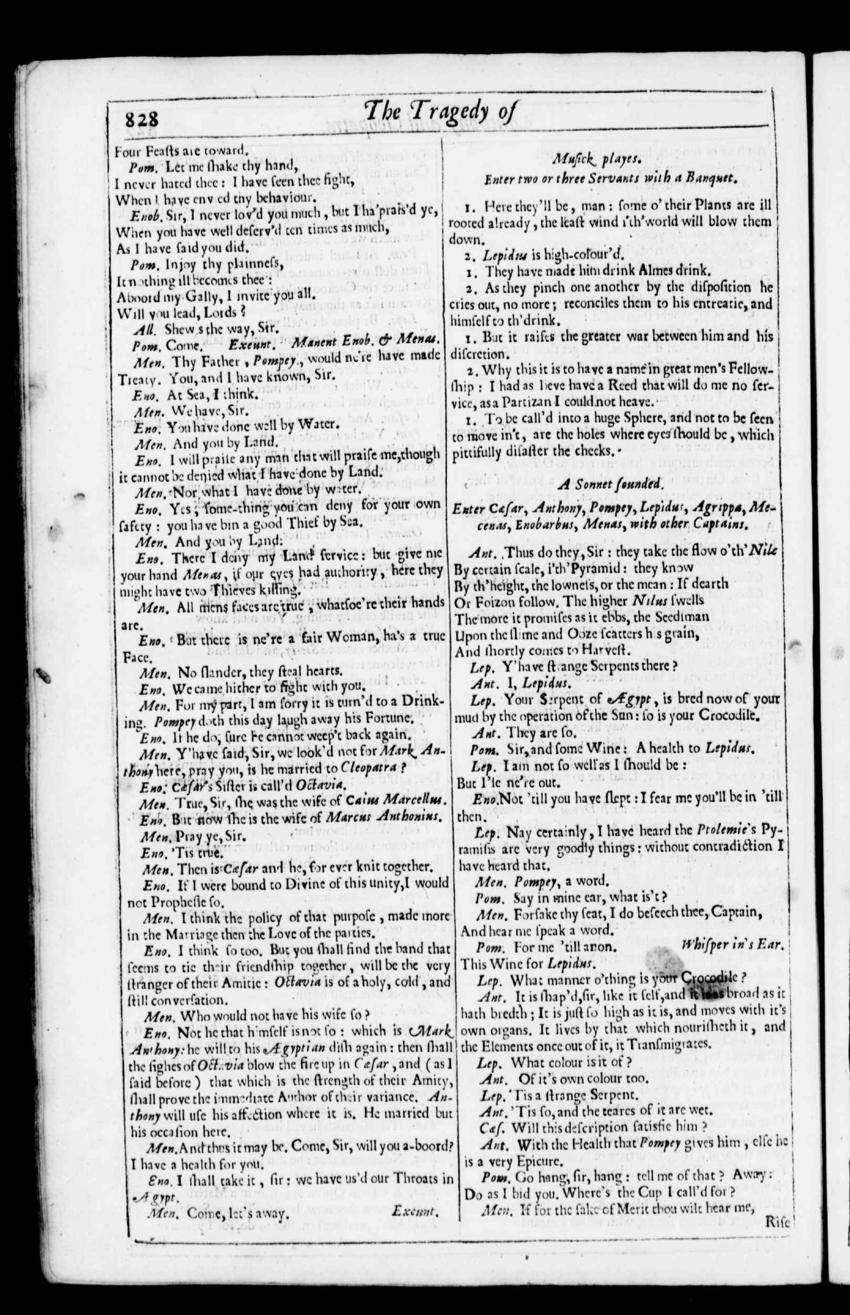 828
The Tragedy of
Four Feasts are toward.
Pom. Let me shake thy hand,
I never hated thee: I have seen thee fight,
When I have env ed thy behaviour.
Enob. Sir, I never lov'd you much, but I ha'prais'd ye,
When you have well deserv'd ten times as much,
As I have said you did.
Pom. Injoy thy plainness,
It nothing ill becomes thee:
Aboord my Gally, I invite you all.
Will you lead, Lords?
All. Shew s the way, Sir.
Pom. Come. Exeunt. Manent Enob. & Menas.
Men. Thy Father, Pompey, would ne're have made
Treaty. You, and I have known, Sir.
Eno. At Sea, I think.
Men. We have, Sir.
Eno. You have done well by Water.
Men. And you by Land.
Eno. I will praise any man that will praise me, though
it cannot be denied what I have done by Land.
Men. Nor what I have done by water.
Eno. Yes, some-thing you can deny for your own
safety: you have bin a good Thief by Sea.
Men. And you by Land.
Eno. There I deny my Land service: but give me
your hand Menas, if our eyes had authority, here they
might have two Thieves kissing.
Men. All mens faces are true, whatsoe're their hands
are.
Eno. But there is ne're a fair Woman, ha's a true
Face.
Men. No slander, they steal hearts.
Eno. We came hither to fight with you.
Men. For my part, I am sorry it is turn'd to a Drink-
ing. Pompey doth this day laugh away his Fortune.
Eno. If he do, sure he cannot weep't back again.
Men. Y'have said, Sir, we look'd not for Mark An-
thony here, pray you, is he married to Cleopatra?
Eno. Cæsar's Sister is call'd Octavia.
Men. True, Sir, she was the wife of Caius Marcellus.
Eno. But now she is the wife of Marcus Anthonius.
Men. Pray ye, Sir.
Eno. 'Tis true.
Men. Then is Cæsar and he, for ever knit together.
Eno. If I were bound to Divine of this unity, I would
not Prophesie so.
Men. I think the policy of that purpose, made more
in the Marriage then the Love of the parties.
Eno. I think so too. But you shall find the band that
seems to tie their friendship together, will be the very
stranger of their Amitie: Octavia is of a holy, cold, and
still conversation.
Men. Who would not have his wife so?
Eno. Not he that himself is not so: which is Mark
Anthony: he will to his Ægyptian dish again: then shall
the sighes of Octavia blow the fire up in Cæsar, and (as I
said before) that which is the strength of their Amity,
shall prove the immediate Author of their variance. An-
thony will use his affection where it is. He married but
his occasion here.
Men. And thus it may be. Come, Sir, will you a-boord?
I have a health for you.
Eno. I shall take it, sir: we have us'd our Throats in
Ægypt.
Men. Come, let's away. Exeunt.
Musick playes.
Enter two or three Servants with a Banquet.
1. Here they'll be, man: some o' their Plants are ill
rooted already, the least wind i'th'world will blow them
down.
2. Lepidus is high-colour'd.
1. They have made him drink Almes drink.
2. As they pinch one another by the disposition he
cries out, no more; reconciles them to his entreatie, and
himself to th'drink.
1. But it raises the greater war between him and his
discretion.
2. Why this it is to have a name in great men's Fellow-
ship: I had as lieve have a Reed that will do me no ser-
vice, as a Partizan I could not heave.
1. To be call'd into a huge Sphere, and not to be seen
to move in't, are the holes where eyes should be, which
pittifully disaster the cheeks.
A Sonnet sounded.
Enter Cæsar, Anthony, Pompey, Lepidus, Agrippa, Me-
cenas, Enobarbus, Menas, with other Captains.
Ant. Thus do they, Sir: they take the flow o'th' Nile
By certain scale, i'th'Pyramid: they know
By th'height, the lowness, or the mean: If dearth
Or Foizon follow. The higher Nilus swells
The more it promises as it ebbs, the Seedsman
Upon the slime and Ooze scatters h s grain,
And shortly comes to Harvest.
Lep. Y'have strange Serpents there?
Ant. I, Lepidus.
Lep. Your Serpent of Ægypt, is bred now of your
mud by the operation of the Sun: so is your Crocodile.
Ant. They are so.
Pom. Sir, and some Wine: A health to Lepidus.
Lep. I am not so well as I should be:
But I'le ne're out.
Eno. Not 'till you have slept: I fear me you'll be in 'till
then.
Lep. Nay certainly, I have heard the Ptolemie's Py-
ramisis are very goodly things: without contradiction I
have heard that.
Men. Pompey, a word.
Pom. Say in mine ear, what is't?
Men. Forsake thy seat, I do beseech thee, Captain,
And hear me speak a word.
Pom. For me 'till anon. Whisper in's Ear.
This Wine for Lepidus.
Lep. What manner o'thing is your Crocodile?
Ant. It is shap'd, sir, like it self, and it is as broad as it
hath bredth; It is just so high as it is, and moves with it's
own organs. It lives by that which nourisheth it, and
the Elements once out of it, it Transmigrates.
Lep. What colour is it of?
Ant. Of it's own colour too.
Lep. 'Tis a strange Serpent.
Ant. 'Tis so, and the teares of it are wet.
Cæs. Will this description satisfie him?
Ant. With the Health that Pompey gives him, else he
is a very Epicure.
Pom. Go hang, sir, hang: tell me of that? Away:
Do as I bid you. Where's the Cup I call'd for?
Men. If for the sake of Merit thou wilt hear me,
Rise